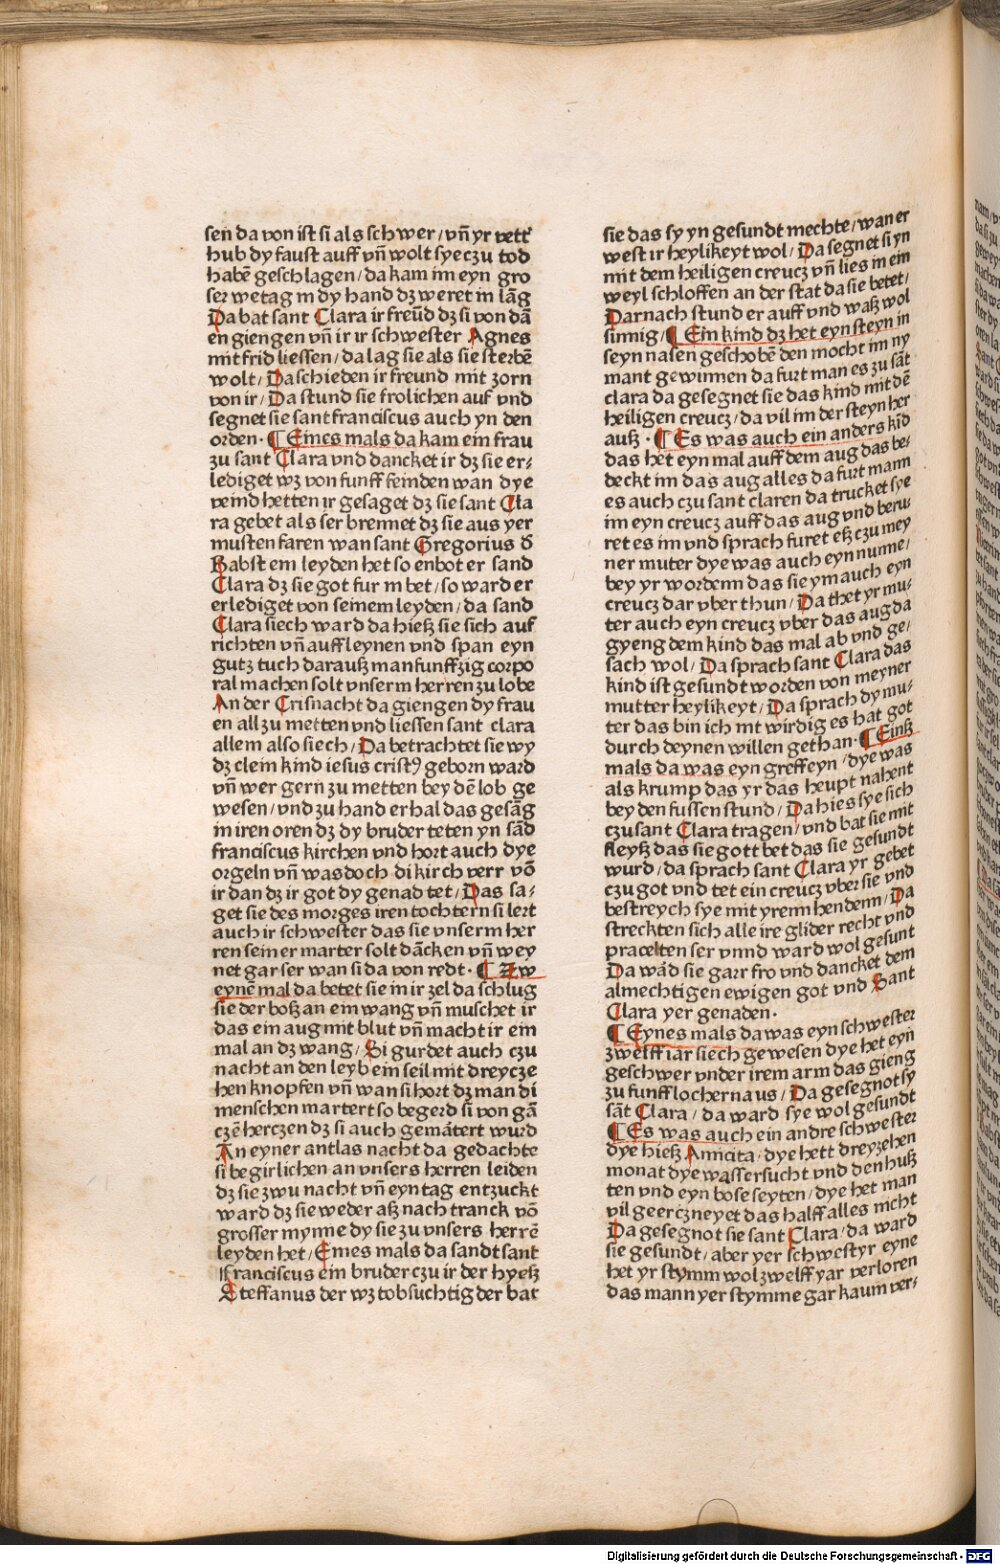 sen da von ist si als schwer / vñ yr vett
hub dy faust auff vñ wolt sye czu tod
habē geschlagen / da kam im eyn gro
ser wetag in dy hand dz weret in lāg
Da bat sant Clara ir freūd dz si von dā
en giengen vñ ir ir schwester Agnes
mit frid liessen / da lag sie als sie sterbē
wolt / Da schieden ir freund mit zorn
von ir / Da stund sie frolichen auf vnd
segnet sie sant franciscus auch yn den
orden · ¶ Eines mals da kam ein frau
zu sant Clara vnd dancket ir dz sie er-
lediget wz von funff feinden wan dye
veind hetten ir gesaget dz sie sant Cla
ra gebet als ser brennet dz sie aus yer
musten faren wan sant Gregorius d̄
Babst ein leyden het so enbot er sand
Clara dz sie got fur in bet / so ward er
erlediget von seinem leyden / da sand
Clara siech ward da hieß sie sich auf
richten vñ auff leynen vnd span eyn
gutz tuch darauß man funffzig corpo
ral machen solt vnserm herren zu lobe
An der Cristnacht da giengen dy frau
en all zu metten vnd liessen sant clara
allein also siech / Da betrachtet sie wy
dz clein kind iesus cristꝰ geborn ward
vñ wer gern zu metten bey dē lob ge
wesen / vnd zu hand erhal das gesāg
in iren oren dz dy bruder teten yn sād
franciscus kirchen vnd hort auch dye
orgeln vñ was doch di kirch verr vō
ir dan dz ir got dy genad tet / Das sa-
get sie des morges iren tochtern si lert
auch ir schwester das sie vnserm her
ren seiner marter solt dācken vñ wey
net gar ser wan si da von redt · ¶ Zw
eynē mal da betet sie in ir zel da schlug
sie der boß an ein wang vñ muschet ir
das ein aug mit blut vñ macht ir ein
mal an dz wang / Si gurdet auch czu
nacht an den leyb ein seil mit dreycze
hen knopfen vñ wan si hort dz man di
menschen martert so begerd si von gā
czē herczen dz si auch gemātert wurd
An eyner antlas nacht da gedachte
si begirlichen an vnsers herren leiden
dz sie zwu nacht vñ eyn tag entzuckt
ward dz sie weder aß nach tranck vō
grosser mynne dy sie zu vnsers herrē
leyden het / Eines mals da sandt sant
Franciscus ein bruder czu ir der hyeß
Steffanus der wz tobsuchtig der bat
sie das sy yn gesundt mechte / wan er
west ir heylikeyt wol / Da segnet si yn
mit dem heiligen creucz vñ lies in ein
weyl schloffen an der stat da sie betet /
Darnach stund er auff vnd waß wol
sinnig / ¶ Ein kind dz het eyn steyn in
seyn nasen geschobē den mocht im ny
mant gewinnen da furt man es zu sāt
clara da gesegnet sie das kind mit dē
heiligen creucz / da vil im der steyn her
auß · ¶ Es was auch ein anders kīd
das het eyn mal auff dem aug das be-
deckt im das aug alles da furt mann
es auch czu sant claren da trucket sye
im eyn creucz auff das aug vnd beru
ret es im vnd sprach furet eß czu mey
ner muter dye was auch eyn nunne /
bey yr wordenn das sie ym auch eyn
creucz dar vber thun / Da thet yr mu-
ter auch eyn creucz vber das aug da
gyeng dem kind das mal ab vnd ge-
sach wol / Da sprach sant Clara das
kind ist gesundt worden von meyner
mutter heylikeyt / Da sprach dy mu-
ter das bin ich nit wirdig es hat got
durch deynen willen gethan · ¶ Einß
mals da was eyn greffeyn / dye was
als krump das yr das heupt nahent
bey den fussen stund / Da hies sye sich
czu sant Clara tragen / vnd bat sie mit
fleyß das sie gott bet das sie gesundt
wurd / da sprach sant Clara yr gebet
czu got vnd tet ein creucz vber sie vnd
bestreych sye mit yrenn hendenn / Da
streckten sich alle ire glider recht vnd
pracelten ser vnnd ward wol gesunt
Da wād sie garr fro vnd dancket dem
almechtigen ewigen got vnd Sant
Clara yer genaden ·
¶ Eynes mals da was eyn schwester
zwelff iar siech gewesen dye het eyn
geschwer vnder irem arm das gieng
zu funff lochern aus / Da gesegnot sy
sāt Clara / da ward sye wol gesundt
¶ Es was auch ein andre schwester
dye hieß Anncita / dye hett dreyzehen
monat dye wassersucht vnd den huß
ten vnd eyn bose seyten / dye het man
vil geerczneyet das halff alles nicht
Da gesegnot sie sant Clara / da ward
sie gesundt / aber yer schwestyr eyne
het yr stymm wol zwelff yar verloren
das mann yer stymme gar kaum ver-
Digitalisierung gefördert durch die Deutsche Forschungsgemeinschaft - DFG